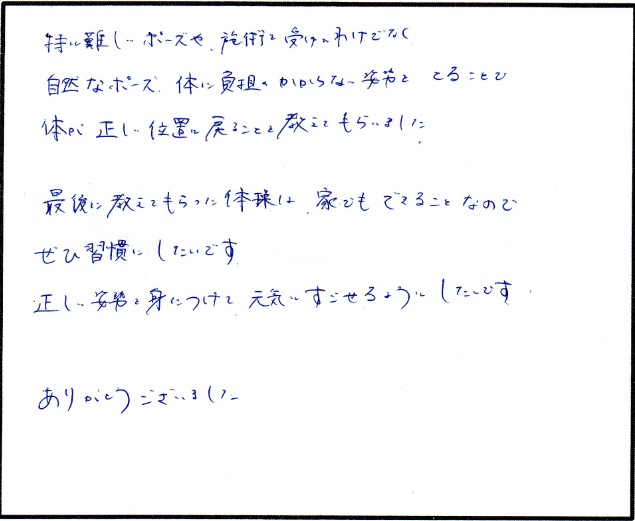 特に難しいポーズや、施術を受けるわけでなく
自然なポーズ、体に負担がかからない姿勢をとることで
体が正しい位置に戻ることを教えてもらいました
最後に教えてもらった体操は、家でもできることなので
ぜひ習慣にしたいです
正しい姿勢を身につけて元気にすごせるようにしたいです
ありがとうございました